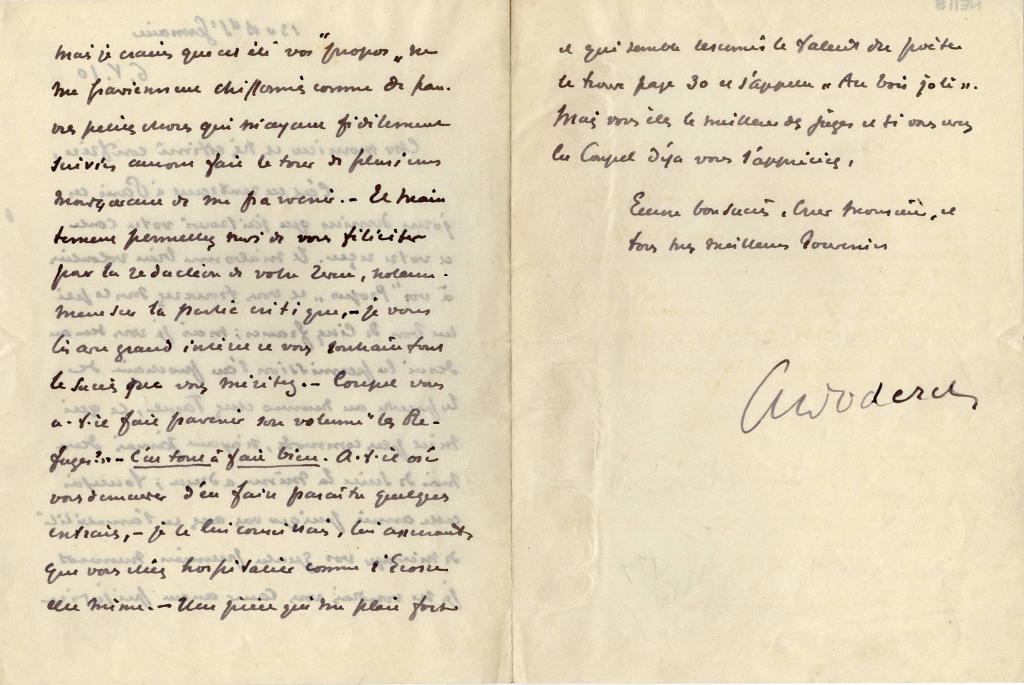 Mais je crains que cet été vos "propos" ne
me parviennent chiffonnés comme de pau-
vres petites choses qui m'ayant fidèlement
suivies auront fait le tour de plusieurs
avant de me parvenir. - Et main
tenant permettez moi de vous féliciter
pour la rédaction de votre revue, notam-
ment sur la partie critique, - je vous
lis avec grand intérêt et vous souhaite tout
le succès que vous méritez. - Coupel vous
a-t-il fait parvenir son volume "les Re-
fuges"? - C'est tout à fait bien. A-t-il osé
vous demander d'en faire paraître quelques
extraits, - je le lui conseillais, lui assurant
que vous étiez hospitalier comme l'Ecosse
elle même. - Une pièce qui me plaît fort
et qui semble le talent du poète
se trouve page 30 et s'appelle "Au bois joli".
Mais vous êtes le meilleur des juges et si vous avez
lu Coupel déjà vous l'appréciez.
Encore bon succès, cher Monsieur, et
tous mes meilleurs souvenirs